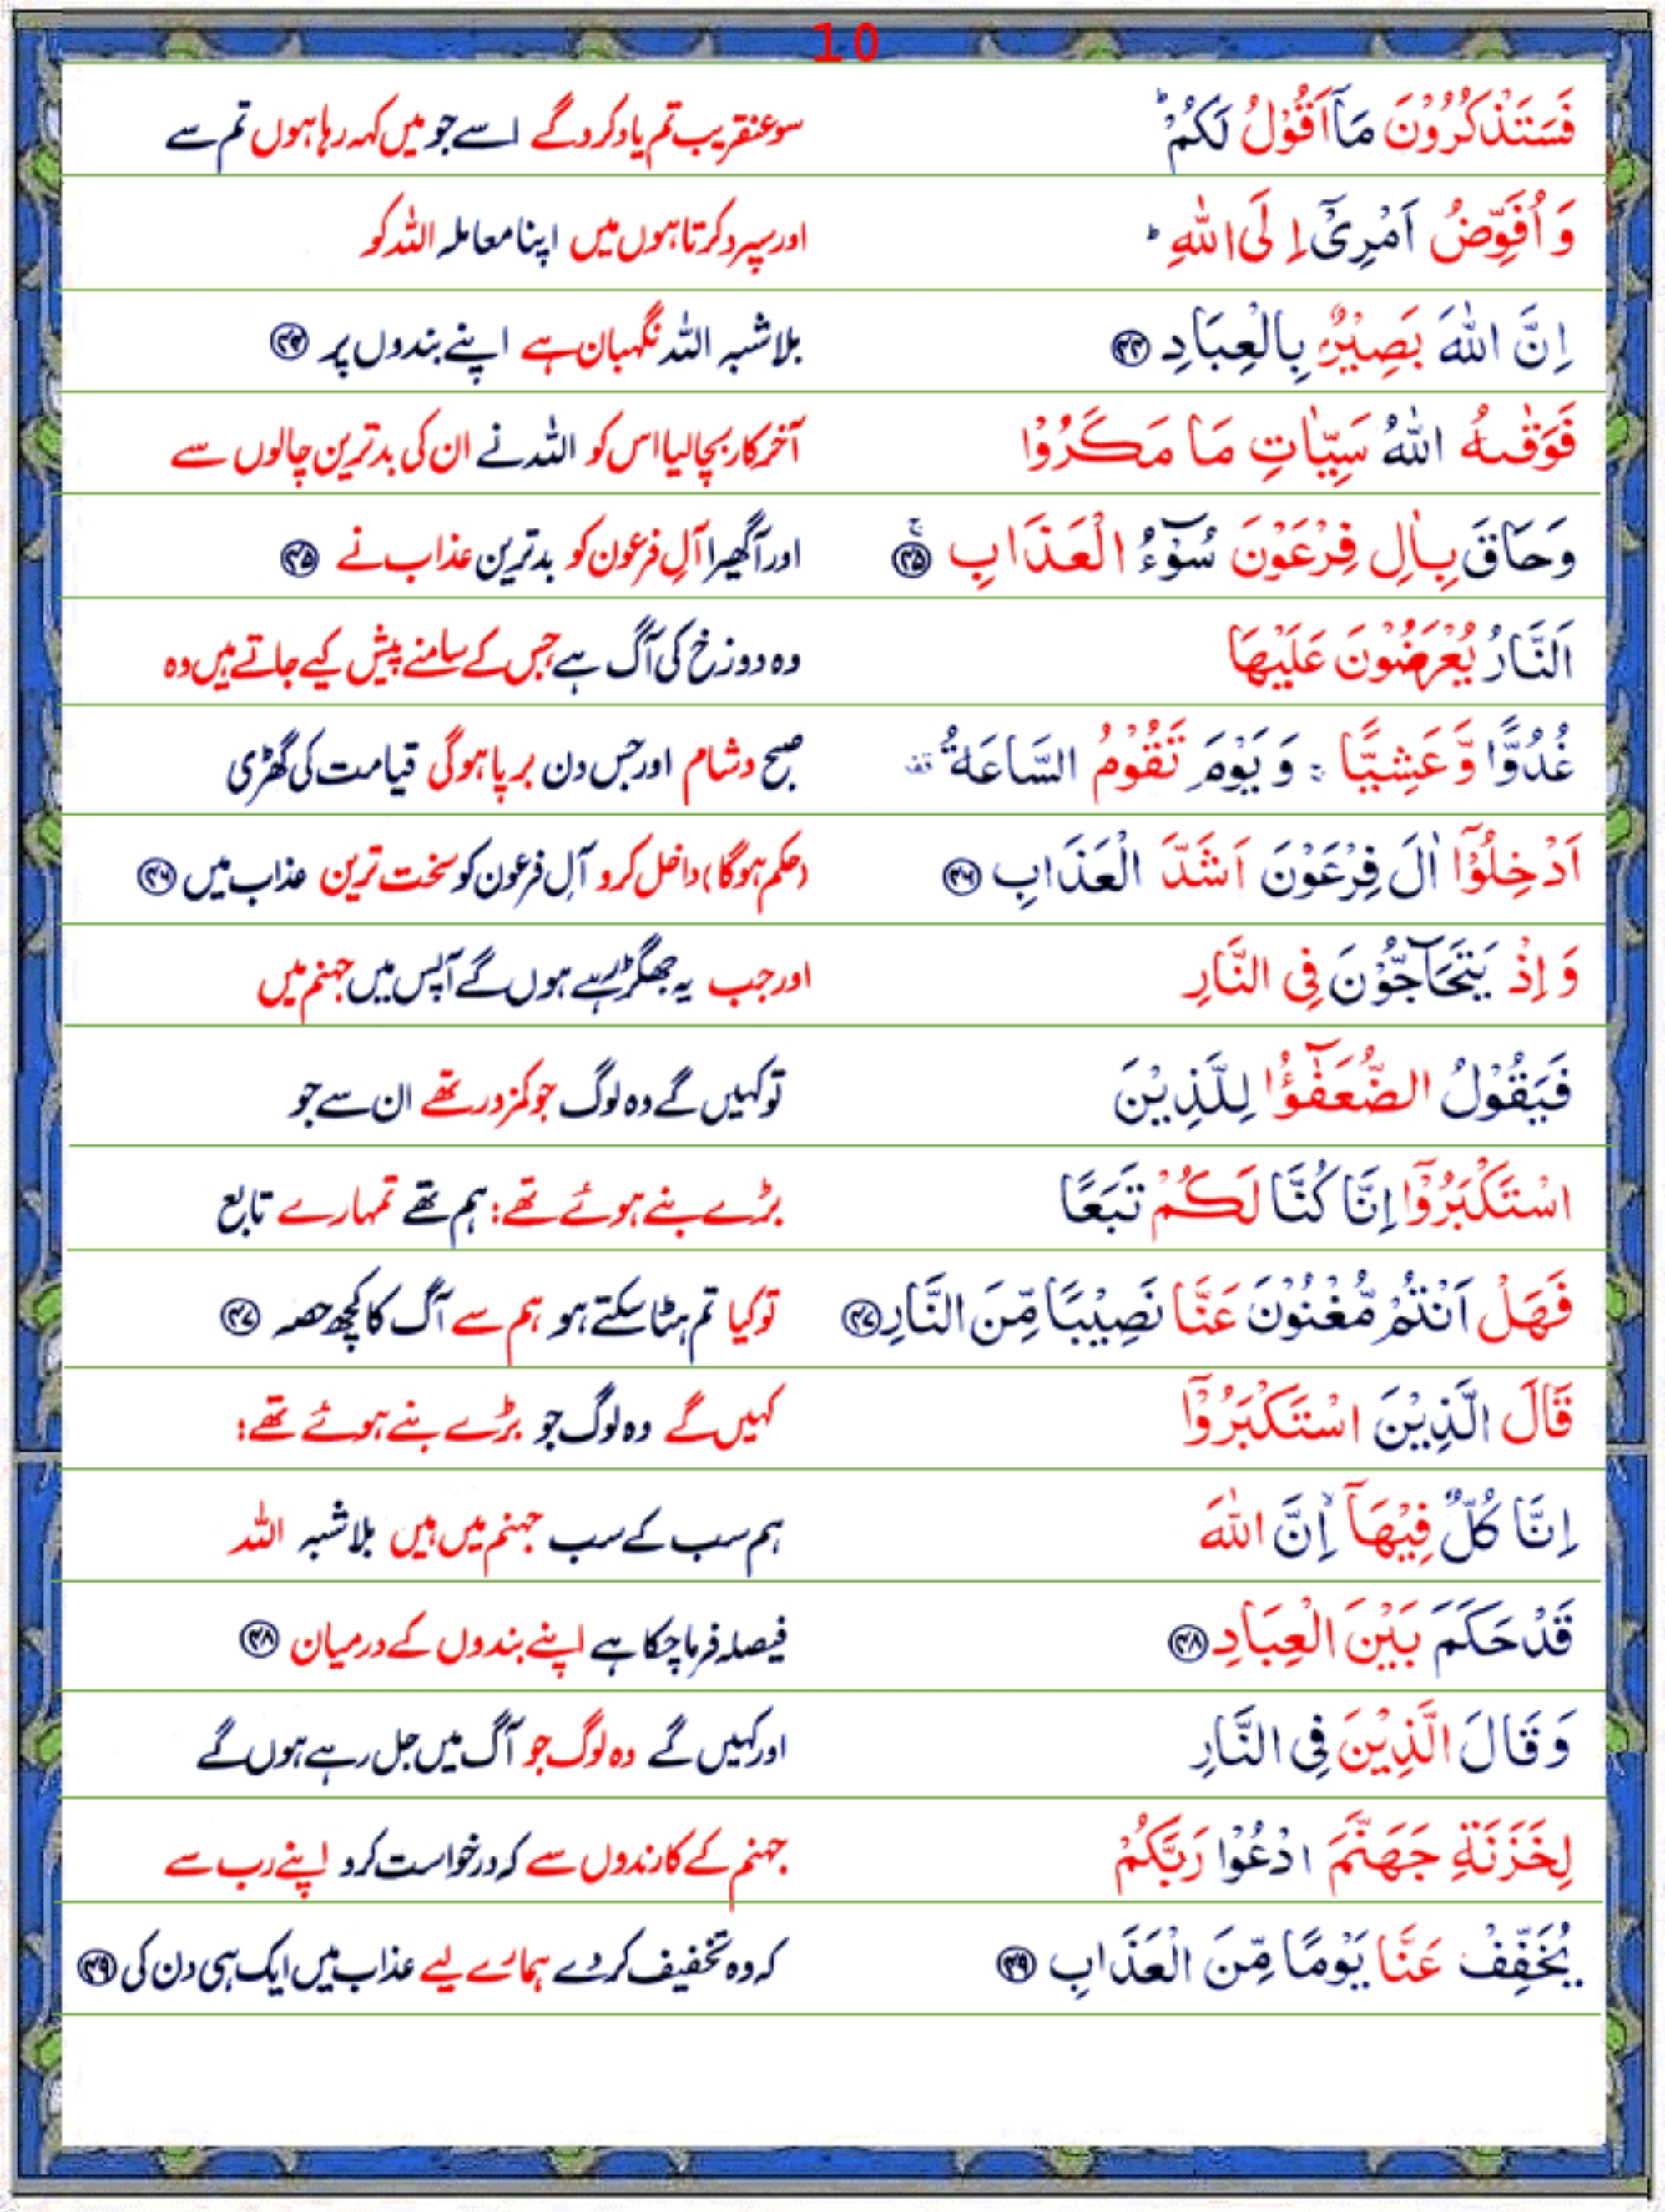 10
فَسَتَذْكُرُوْنَ مَاۤ اَقُوْلُ لَكُمْ ؕ سو عنقریب تم یاد کرو گے اسے جو میں کہہ رہا ہوں تم سے
وَ اُفَوِّضُ اَمْرِیْۤ اِلَی اللّٰهِ ؕ اور سپرد کرتا ہوں میں اپنا معاملہ اللہ کو
اِنَّ اللّٰهَ بَصِیْرٌۢ بِالْعِبَادِ ۴۴ بلا شبہ اللہ نگہبان ہے اپنے بندوں پر ۴۴
فَوَقٰىهُ اللّٰهُ سَیِّاٰتِ مَا مَكَرُوْا آخر کار بچالیا اس کو اللہ نے ان کی بدترین چالوں سے
وَ حَاقَ بِاٰلِ فِرْعَوْنَ سُوْٓءُ الْعَذَابِ ۴۵ ۚ اور آگھیرا آلِ فرعون کو بدترین عذاب نے ۴۵
اَلنَّارُ یُعْرَضُوْنَ عَلَیْهَا وہ دوزخ کی آگ ہے جس کے سامنے پیش کیے جاتے ہیں وہ
غُدُوًّا وَّ عَشِیًّا ۚ وَ یَوْمَ تَقُوْمُ السَّاعَةُ ۫ صبح و شام اور جس دن برپا ہوگی قیامت کی گھڑی
اَدْخِلُوْۤا اٰلَ فِرْعَوْنَ اَشَدَّ الْعَذَابِ ۴۶ (حکم ہوگا) داخل کرو آلِ فرعون کو سخت ترین عذاب میں ۴۶
وَ اِذْ یَتَحَآجُّوْنَ فِی النَّارِ اور جب یہ جھگڑ رہے ہوں گے آپس میں جہنم میں
فَیَقُوْلُ الضُّعَفٰٓؤُا لِلَّذِیْنَ تو کہیں گے وہ لوگ جو کمزور تھے ان سے جو
اسْتَكْبَرُوْۤا اِنَّا كُنَّا لَكُمْ تَبَعًا بڑے بنے ہوئے تھے: ہم تھے تمہارے تابع
فَهَلْ اَنْتُمْ مُّغْنُوْنَ عَنَّا نَصِیْبًا مِّنَ النَّارِ ۴۷ تو کیا تم ہٹا سکتے ہو ہم سے آگ کا کچھ حصہ ۴۷
قَالَ الَّذِیْنَ اسْتَكْبَرُوْۤا کہیں گے وہ لوگ جو بڑے بنے ہوئے تھے:
اِنَّا كُلٌّ فِیْهَاۤ ۙ اِنَّ اللّٰهَ ہم سب کے سب جہنم میں ہیں بلا شبہ اللہ
قَدْ حَكَمَ بَیْنَ الْعِبَادِ ۴۸ فیصلہ فرما چکا ہے اپنے بندوں کے درمیان ۴۸
وَ قَالَ الَّذِیْنَ فِی النَّارِ اور کہیں گے وہ لوگ جو آگ میں جل رہے ہوں گے
لِخَزَنَةِ جَهَنَّمَ ادْعُوْا رَبَّكُمْ جہنم کے کارندوں سے کہ درخواست کرو اپنے رب سے
یُخَفِّفْ عَنَّا یَوْمًا مِّنَ الْعَذَابِ ۴۹ کہ وہ تخفیف کر دے ہمارے لیے عذاب میں ایک ہی دن کی ۴۹